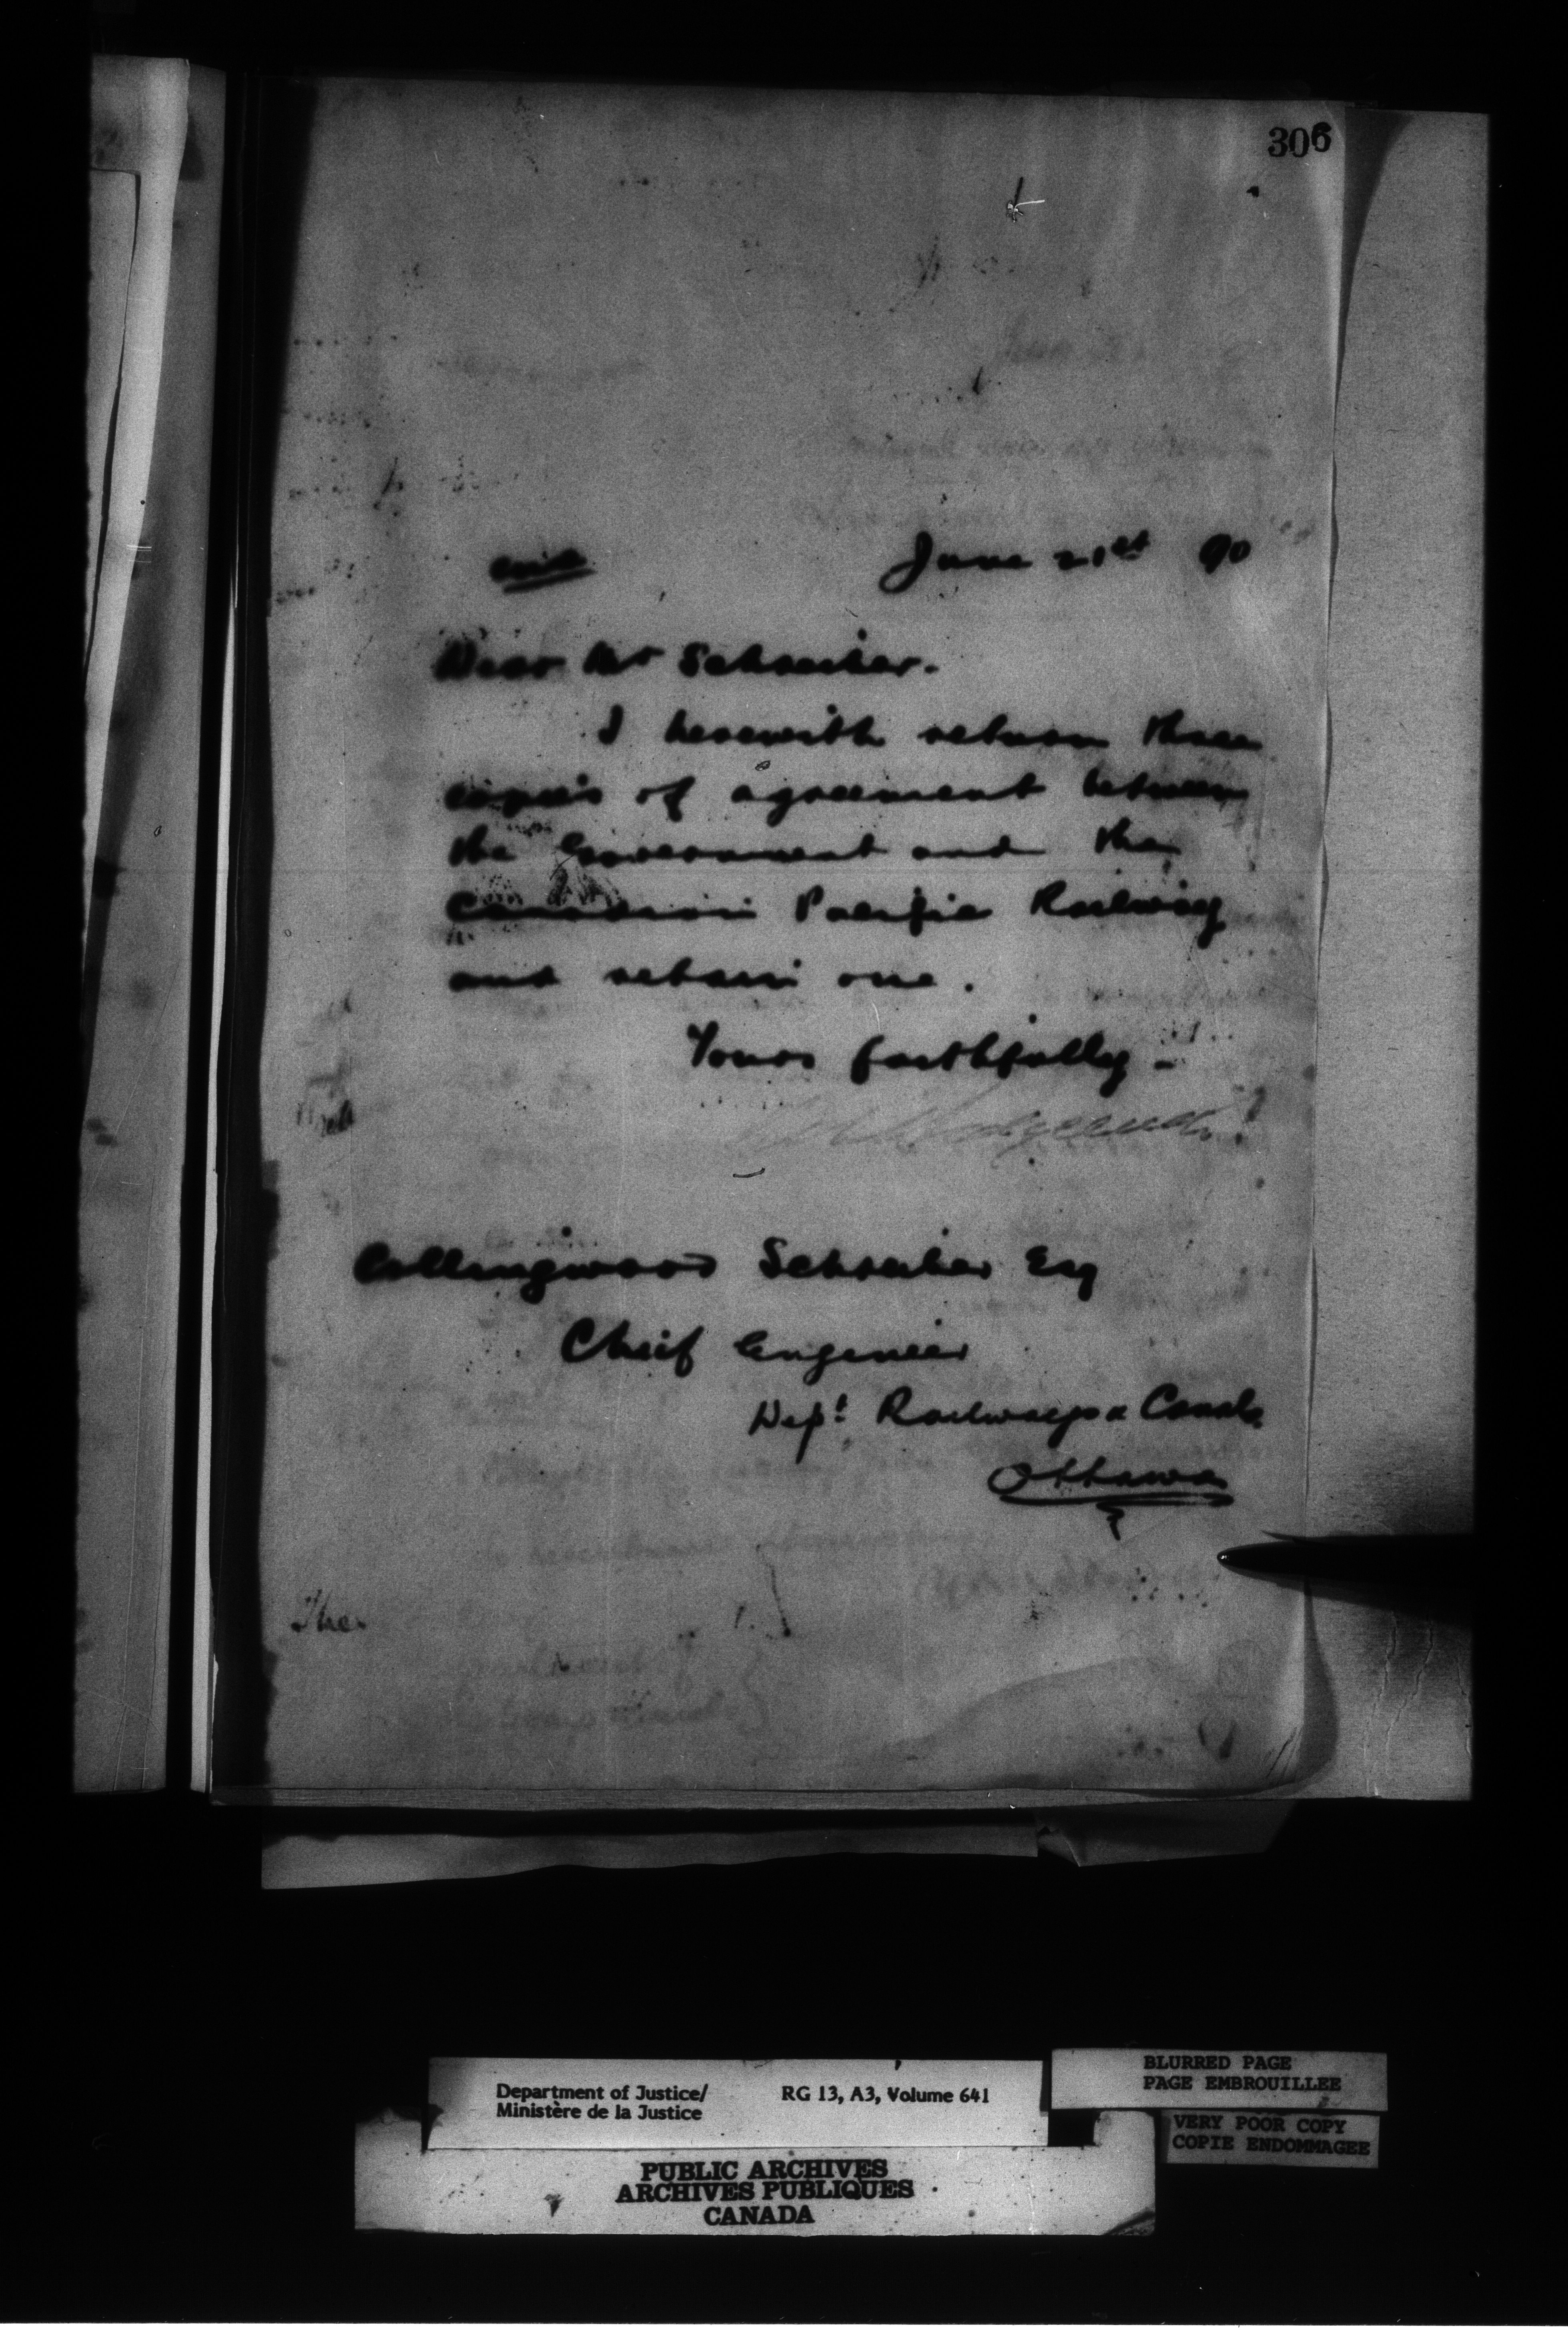 306
June 21st 90
Dear Mr Schreiber.
I herewith return three
copies of agreement between
the Government and the
Canadian Pacific Railway
and retain one.
Yours faithfully
Collingwood Schreiber Esq
Cheif Engineer
Dept Railways & Canals
Ottawa
The
Department of Justice/
Ministère de la Justice
RG 13, A3, Volume 641
BLURRED PAGE
PAGE EMBROUILLEE
VERY POOR COPY
COPIE ENDOMMAGEE
PUBLIC ARCHIVES
ARCHIVES PUBLIQUES
CANADA